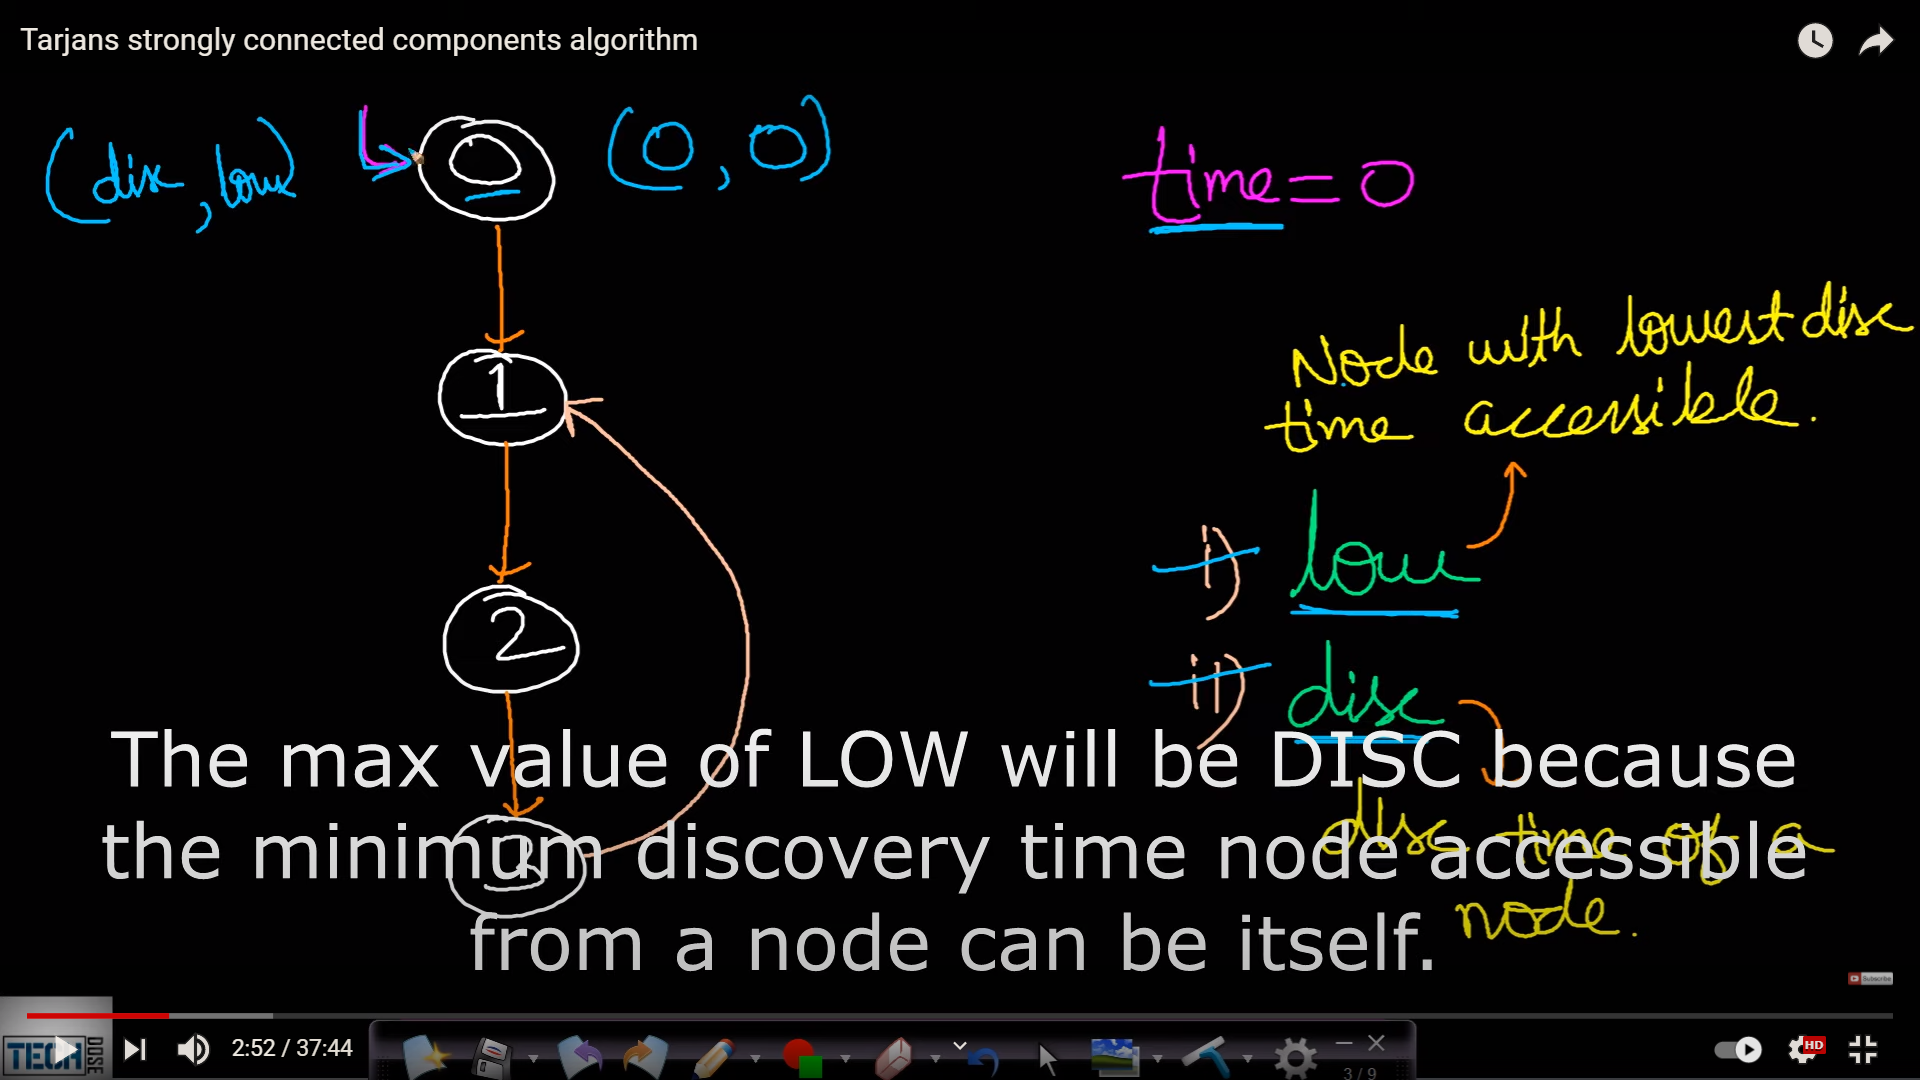 Tarjans strongly connected components algorithm
(disc, low)
0
(0, 0)
time = 0
Node with lowest disc
time accessible.
1
i) low
2
ii) disc
The max value of LOW will be DISC because
disc time of a
the minimum discovery time node accessible
3
node.
from a node can be itself.
Subscribe
TECH DOSE
2:52 / 37:44
HD
3 / 9